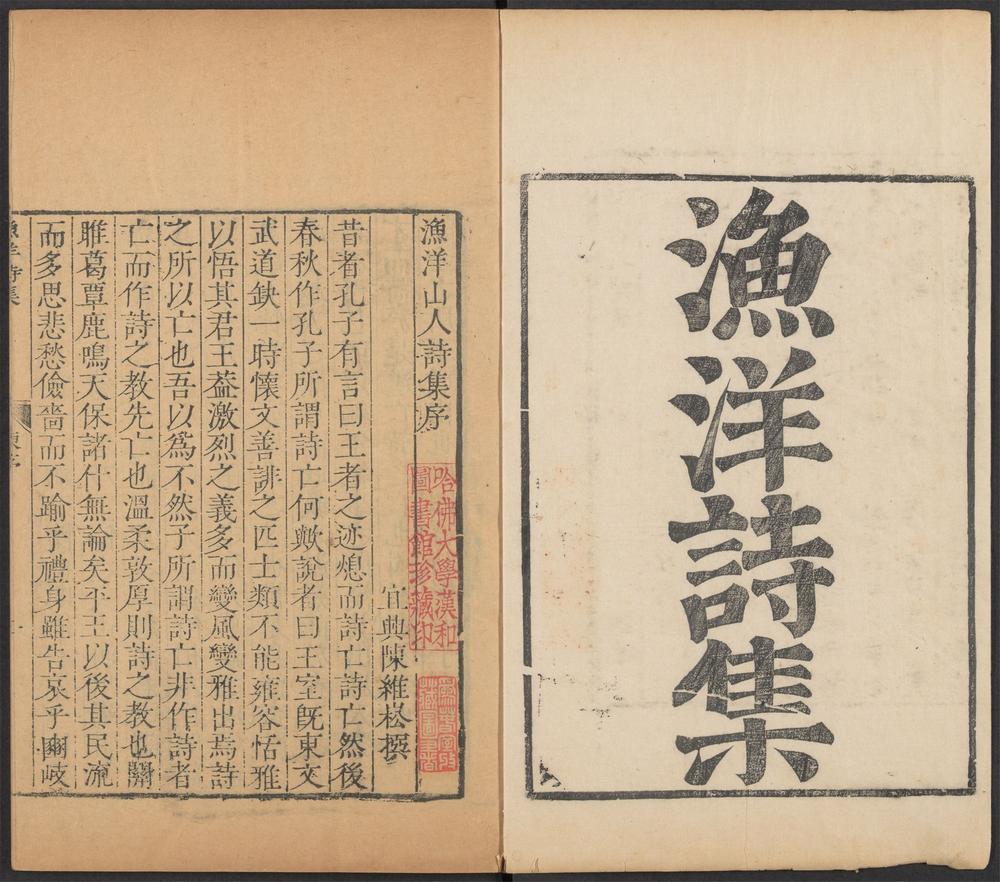 漁洋詩集
漁洋山人詩集序
宜興陳維崧撰
昔者孔子有言曰王者之迹熄而詩亡詩亡然後
春秋作孔子所謂詩亡何歟說者曰王室旣東文
武道缺一時懷文善誹之匹士類不能雍容恬雅
以悟其君王葢激烈之義多而變風變雅出焉詩
之所以亡也吾以爲不然子所謂詩亡非作詩者
亡而作詩之教先亡也溫柔敦厚則詩之教也關
雎葛覃鹿鳴天保諸什無論矣平王以後其民流
而多思悲愁儉嗇而不踰乎禮身雖告哀乎爾岐
漁洋詩集
哈佛大學漢和
圖書館珍藏印